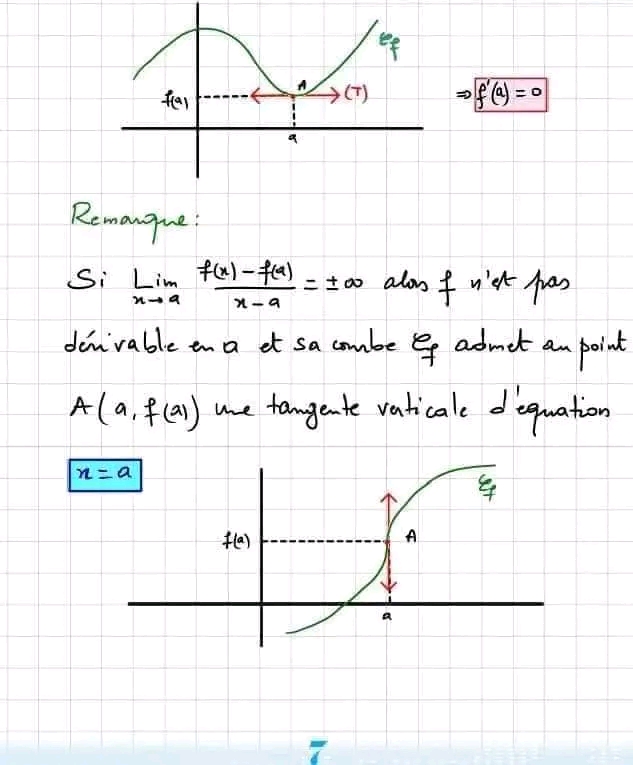 𝒞f
A
f(a)
(T)
⇒ f'(a) = 0
a
Remarque:
Si Lim x→a f(x)-f(a) / x-a = ±∞ alors f n'est pas
dérivable en a et sa courbe 𝒞f admet au point
A(a, f(a)) une tangente verticale d'équation
x = a
𝒞f
f(a)
A
a
7